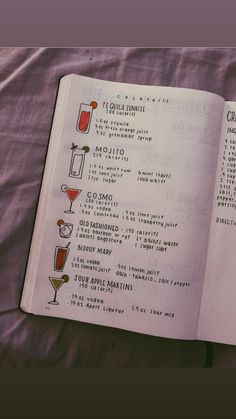 COCKTAILS
TEQUILA SUNRISE
200 calories
1.5 oz tequila
3 oz fresh orange juice
.5 oz grenadine syrup
MOJITO
calories
1.5 oz white rum 6 mint leaves
1 oz lime juice soda water
2 tsp sugar
COSMO
200 calories
1.5 oz vodka .5 oz lime juice
.5 oz cointreau 1.5 oz cranberry juice
OLD FASHIONED - 150 calories
1.5 oz bourbon or rye
2 dashes angostura 1 sugar cube
BLOODY MARY
1.5 oz vodka .5 oz lemon juice
3 oz tomato juice dash - tabasco, salt / pepper
SOUR APPLE MARTINI
calories
oz vodka
oz Apple Liqueur 1.5 oz sour mix
DIRECTI